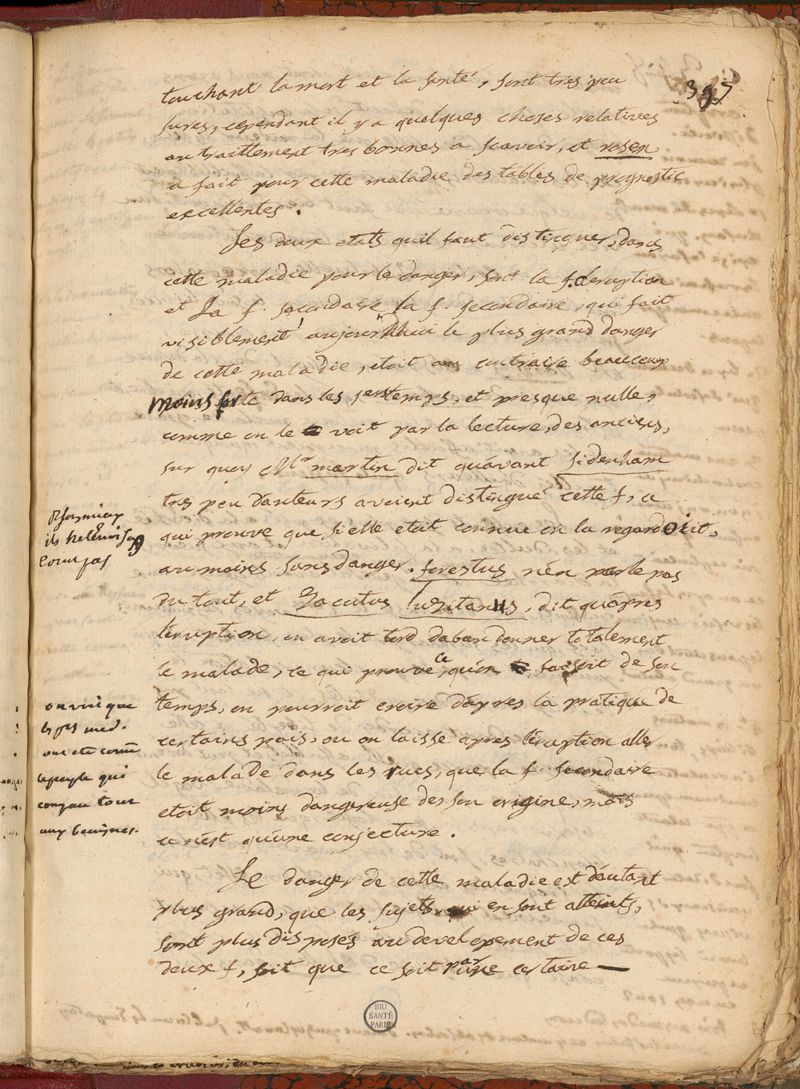 397
touchant la mort et la santé, sont tres peu
sures, cependant il y a quelques choses relatives
au traittement tres bonnes a scavoir, et rosen
a fait pour cette maladie des tables de prognostic
excellentes.
Les deux etats quil faut distinguer, dans
cette maladie pour le danger, sont la f. deruption
et La f. secondaire la f. secondaire, qui fait
visiblement aujourdhui le plus grand danger
de cette maladie, etoit au contraire beaucoup
moins forte dans les temps, et presque nulle,
comme on le voit par la lecture, des anciens,
sur quoy Mr martin dit quavant sidenham
tres peu dauteurs avoient distingué cette f, a
qui prouve que, si elle etait connue on la regardoit,
au moins sans danger. forestus nen parle pas
du tout, et Zacutus Luzitanus, dit quapres
leruption, on avoit tord dabandonner totalement
le malade, ce qui prouve ce quon faisoit de son
temps, on pourroit croire dapres la pratique de
certains pais, ou on laisse apres leruption aller
le malade dans les rues, que la f. secondaire
etoit moins dangereuse des son origine, mais
ce nest quune conjecture.
Le danger de cette maladie est dautant
plus grand, que les sujets, qui en sont atteints,
sont plus disposés au developement de ces
deux f, soit que ce soit par une certaine
on voit que
les med.
ont eté comme
le peuple qui
tout
aux
BIU
SANTÉ
PARIS